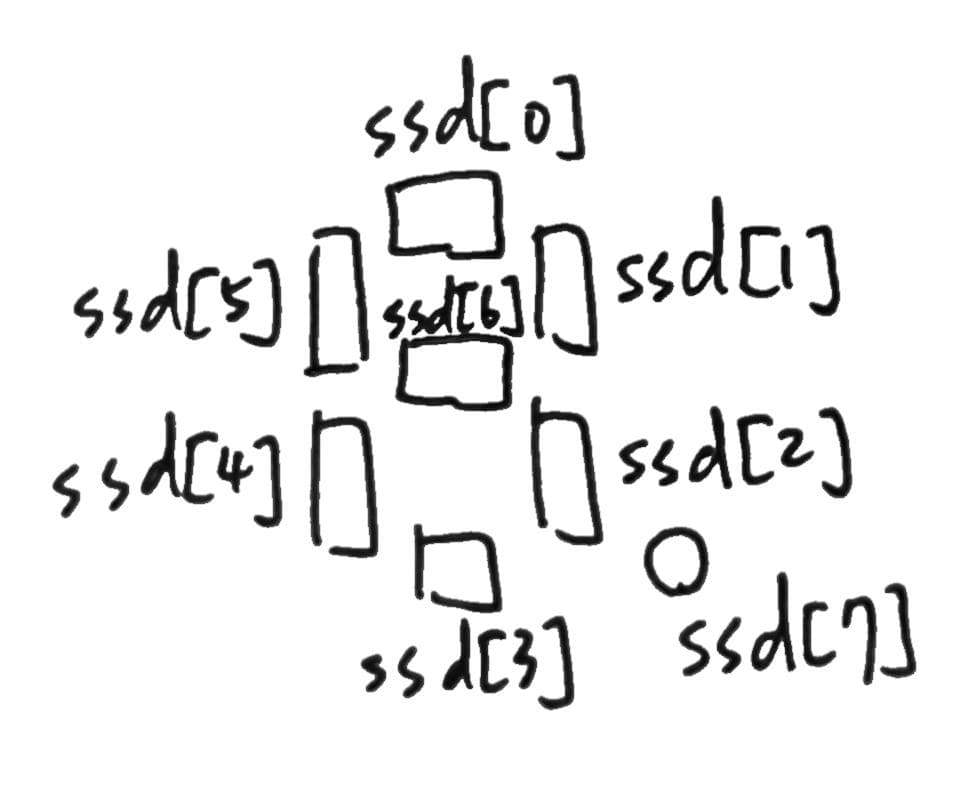 ssd[0]
ssd[5]
ssd[6]
ssd[1]
ssd[4]
ssd[2]
ssd[3]
ssd[7]